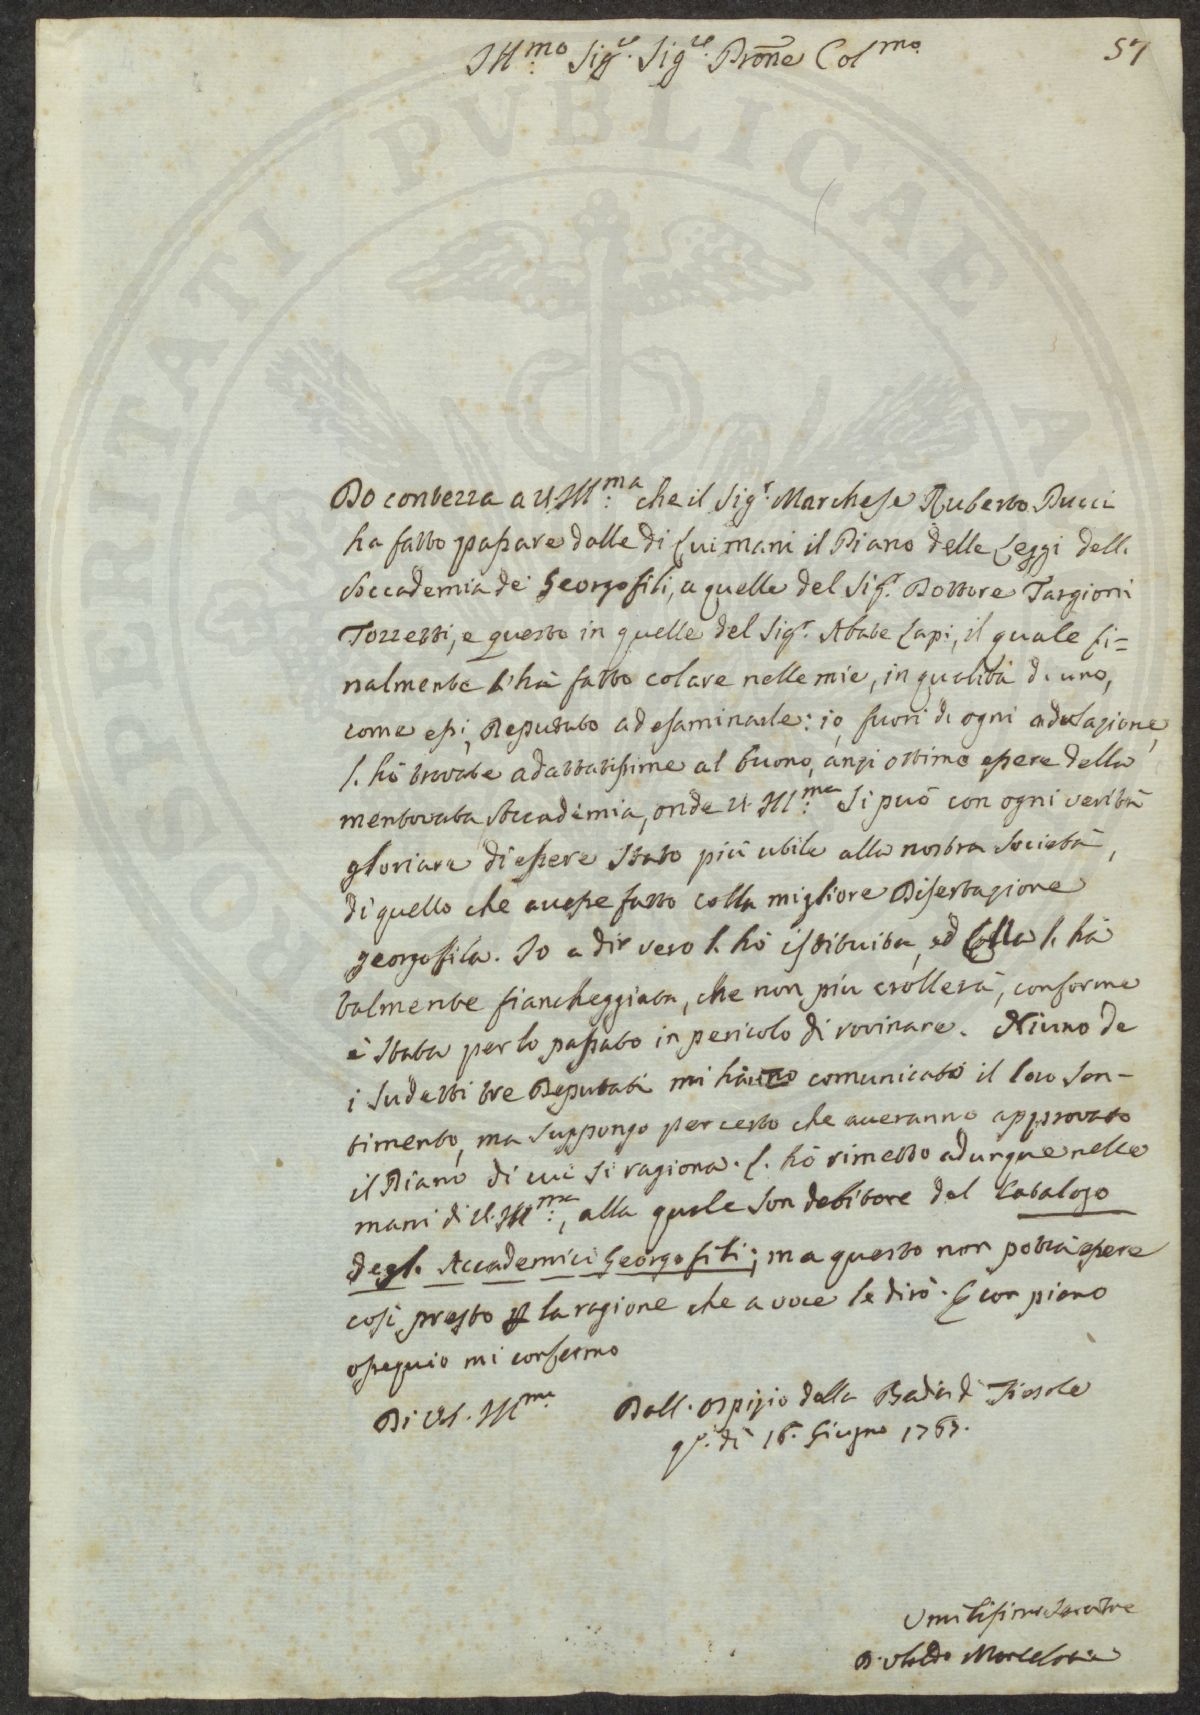 57
Ill:mo Sig:re Sig:re Prõne Col:mo
PROSPERITATI PVBLICAE A
Do contezza a V.Ill:ma che il Sig:r Marchese Ruberto Pucci
ha fatto passare dalle di Lui mani il Piano delle Leggi dell.
Accademia dei Georgofili, a quelle del Sig:r Dottore Targioni
Tozzetti, e questo in quelle del Sig:r Abate Lapi, il quale fi=
nalmente l'hà fatto colare nelle mie, in qualità di uno,
come essi, Deputato ad esaminarle: io, fuori di ogni adulazione,
l. hò trovate adattatissime al buono, anzi ottimo essere della
mentovata Accademia, onde V. Ill:ma si può con ogni verità
gloriare di essere stato più utile alla nostra Società,
di quello che avesse fatto colla migliore Dissertazione
georgofila. Io a dir vero l. hò istituita, ed Ella l. hà
talmente fiancheggiata, che non più crollerà, conforme
è stata per lo passato in pericolo di rovinare. Niuno de
i sudetti tre Deputati mi hanno comunicato il loro sen-
timento, ma suppongo per certo che averanno approvato
il Piano di cui si ragiona. L. hò rimesso adunque nelle
mani di V. Ill:ma, alla quale son debitore del Catalogo
degl. Accademici Georgofili; ma questo non potrà essere
così presto p la ragione che a voce le dirò. E con pieno
ossequio mi confermo
Di V.S. Ill:ma
Dall. Ospizio della Badia di Fiesole
q.to dì 16. Giugno 1767.
Umilissimo Servitore
D. Ubaldo Montelatici